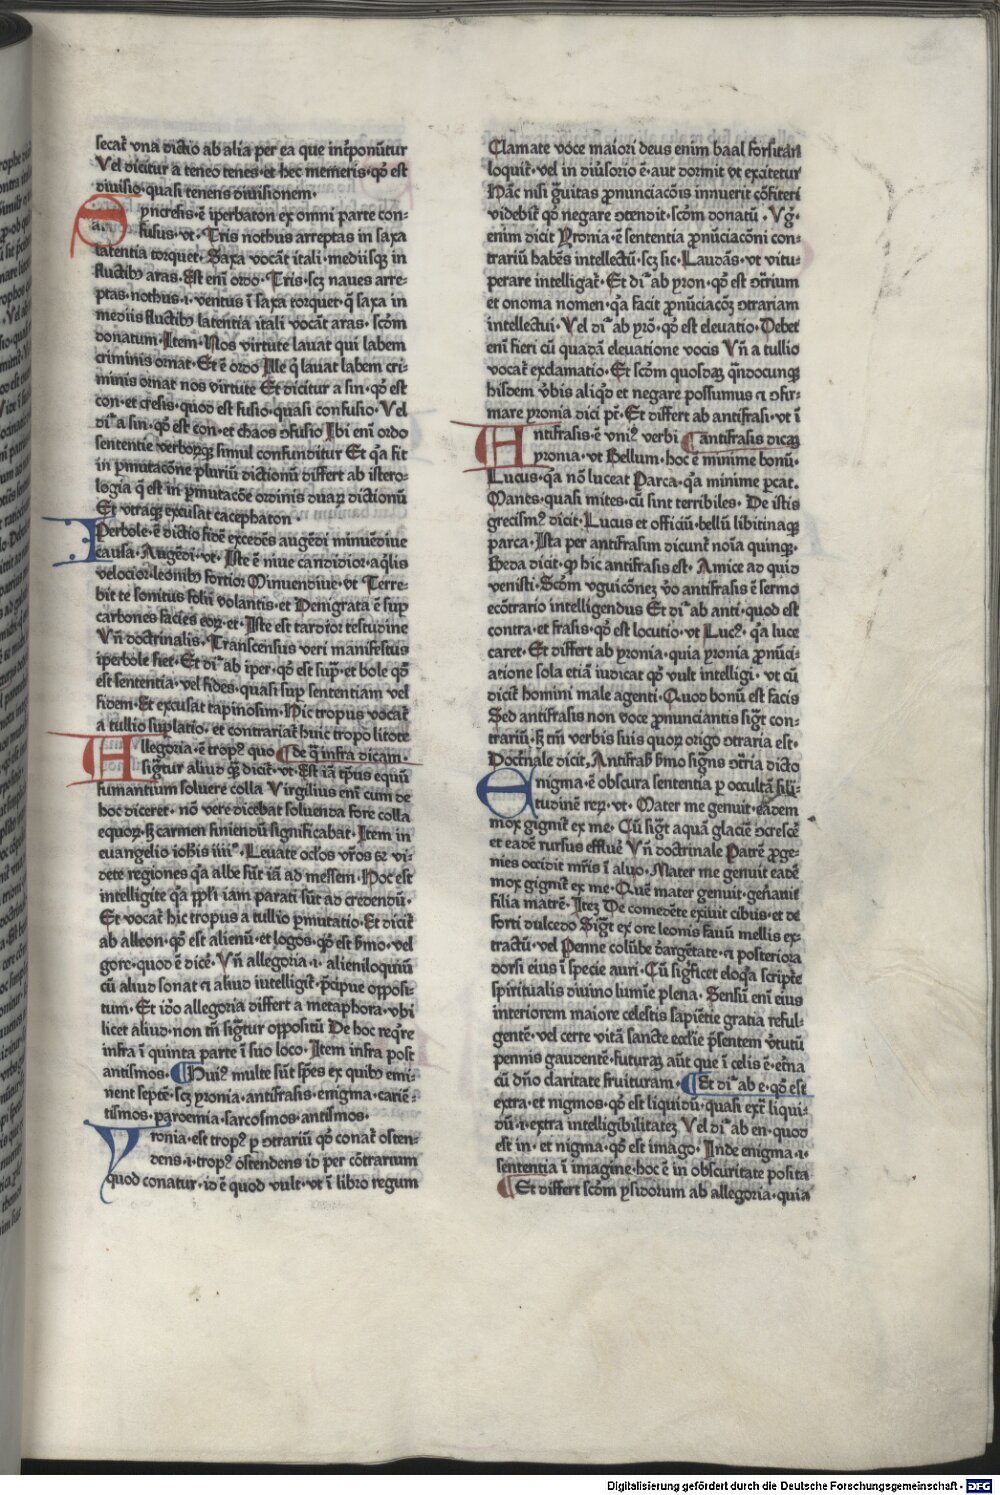 secat᷑ vna dictio ab alia per ea que int̃ponũtur
Vel dicitur a teneo tenes·et hec memeris·qđ est
diuisio·quasi tenens diuisionem·
Sincresis·ẽ iperbaton ex omni parte con-
fusus·vt·Tris nothus arreptas in saxa
latentia torquet·Saxa vocãt itali·mediisqꝫ in
fluctibꝰ aras·Est enĩ ordo·Tris·scꝫ naues arre-
ptas·nothus·i·ventus ĩ saxa torquet·q̃ saxa in
mediis fluctibꝰ latentia itali vocãt aras·scd̃m
donatum·Item·Nos virtute lauat qui labem
criminis ornat·Et ẽ ordo Ille q̃ lauat labem cri-
minis ornat nos virtute Et dicitur a sin·qđ est
con·et cresis·quod est fusio·quasi confusio·Vel
dr̃ a sin·qđ est con·et chaos ꝯfusio Ibi enĩ ordo
sententie verborꝫqꝫ simul confunditur Et q̃a fit
in ꝑmutacõne pluriũ dictionũ differt ab istero-
logia q̃ est in ꝑmutacõe ordinis duaꝝ dictionũ
Et vtraqꝫ excusat cacephaton·
Iperbole·ẽ dictio fidẽ excedẽs augẽdi minuẽdiue
causa·Augẽdi·vt·Iste ẽ niue candidior·aq̃lis
velocior·leonibꝰ fortior Minuendiue·vt Terre-
bit te sonitus folii volantis·et Denigrata ẽ sup̃
carbones facies eoꝝ·et·Iste est tardior testudine
Vñ doctrinalis·Transcensus veri manifestus
iperbole fiet·Et dr̃ ab iper·qđ est sup̃·et bole qđ
est sententia·vel fides·quasi sup̃ sententiam vel
fidem·Et excusat tapinosim·Hic tropus vocat᷑
a tullio suplatio·et contrariat᷑ huic tropo litote
Allegoria·ẽ tropꝰ quo ¶de q̃ infra dicam·
sig̃tur aliud q̃ꝫ dicit᷑·vt·Est iã tp̃us equũ
fumantium soluere colla Virgilius enĩ cum de
hoc diceret·nõ vere dicebat soluenda fore colla
equoꝝ·sꝫ carmen finiendũ significabat·Item in
euangelio ioh̃is iiii°·Leuate oc̃los vr̃os ⁊ vi-
dete regiones q̃a albe sũt iã ad messem·Hoc est
intelligite q̃a pp̃li iam parati sũt ad credendũ·
Et vocat᷑ hic tropus a tullio ꝑmutatio·Et dicit᷑
ab alleon·qđ est alienũ·et logos·qđ est s̃mo·vel
gore·quod ẽ dicẽ·Vñ allegoria·i·alieniloquiũ
cũ aliud sonat ⁊ aliud intelligit᷑·p̃cipue opposi-
tum·Et id̃o allegoria differt a metaphora·vbi
licet aliud·non tñ sig̃tur oppositũ De hoc req̃re
infra ĩ quinta parte ĩ suo loco·Item infra post
antismos·¶Huiꝰ multe sũt sp̃es ex quibꝰ emi-
nent septẽ·scꝫ yronia·antifrasis·enigma·cariẽ-
tismos·paroemia·sarcosmos·antismos·
Yronia·est tropꝰ ꝑ ꝯtrariũ qđ conat᷑ osten-
dens·i·tropꝰ õstendens id per cõtrarium
quod conatur·id ẽ quod vult·vt ĩ libro regum
Clamate voce maiori deus enim baal forsitan
loquit᷑·vel in diũsorio ẽ·aut dormit vt excitetur
Hãc nisi g̃uitas ꝓnunciacõis innuerit cõfiteri
videbit᷑ qđ negare ꝯtendit·scd̃m donatũ·Vg̃·
enim dicit Yronia·ẽ sententia ꝓnũciacõni con-
trariũ habẽs intellectũ·scꝫ sic·Laudãs·vt vitu-
perare intelligat᷑·Et dr̃ ab yron·qđ est ꝯtrium
et onoma nomen·q̃a facit ꝓnũciacõꝫ ꝯtrariam
intellectui·Vel dr̃ ab yrõ·qđ est eleuatio·Debet
enĩ fieri cũ quadã eleuatione vocis Vñ a tullio
vocat᷑ exclamatio·Et scd̃m quosdaꝫ qñdocunqꝫ
hisdem v̾bis aliqđ et negare possumus ⁊ ꝯfir-
mare yronia dici pt̃·Et differt ab antifrasi·vt ĩ
Antifrasis·ẽ vniꝰ verbi ¶antifrasis dicaꝫ
yronia·vt Bellum·hoc ẽ minime bonũ·
Lucus·q̃a nõ luceat Parca·q̃a minime ꝑcat·
Manes·quasi mites·cũ sint terribiles·De istis
grecismꝰ dicit·Lucus et officiũ·bellũ libitinaqꝫ
parca·Ista per antifrasim dicunt᷑ noĩa quinqꝫ·
Beda dicit·qđ hic antifrasis est·Amice ad quid
venisti·Scd̃m vguicõneꝫ v̾o antifrasis ẽ sermo
ecõtrario intelligendus Et dr̃ ab anti·quod est
contra·et frasis·qđ est locutio·vt Lucꝰ·q̃a luce
caret·Et differt ab yronia·quia yronia ꝓnũci-
atione sola etiã iudicat qđ vult intelligi·vt cũ
dicit᷑ homini male agenti·Quod bonũ est facis
Sed antifrasis non voce ꝓnunciantis sig̃t con-
trariũ·sꝫ tm̃ verbis suis quoꝝ origo ꝯtraria est·
Doct̃nale dicit, Antifrasis s̃mo sig̃ns ꝯtr̃ia dicto
Enigma·ẽ obscura sententia ꝑ occultã sili-
tudinẽ reꝝ·vt·Mater me genuit·eadem
mox gignit᷑ ex me·Cũ sig̃t aquã glaciẽ ꝯcrescẽ
et eadẽ rursus effluẽ Vñ doctrinale Patrẽ ꝓge-
nies occidit mr̃is ĩ aluo·Mater me genuit eadẽ
mox gignit᷑ ex me·Quẽ mater genuit·gen̾auit
filia matrẽ·Iteꝫ De comedẽte exiuit cibus·et de
forti dulcedo Sig̃t ex ore leonis fauũ mellis ex-
tractũ·vel Penne colũbe dargẽtate·⁊ posteriora
dorsi eius ĩ specie auri·Cũ sig̃ficet eloq̃a scripte
spiritualis diuino lumĩe plena·Sensũ enĩ eius
interiorem maiore celestis sapiẽtie gratia reful-
gentẽ·vel certe vitã sancte ecclĩe p̃sentem v̾tutũ
pennis gaudentẽ·futuraꝫ aũt que ĩ celis ẽ·et̃na
cũ dñо claritate fruituram·¶Et dr̃ ab e·qđ est
extra·et nigmos·qđ est liquidũ·quasi ext̃ liqui-
dũ·i·extra intelligibilitateꝫ Vel dr̃ ab en·quod
est in·et nigma·qđ est imago·Inde enigma·i·
sententia ĩ imagine·hoc ẽ in obscuritate posita
¶Et differt scd̃m ysidorum ab allegoria·quia
Digitalisierung gefördert durch die Deutsche Forschungsgemeinschaft - DFG